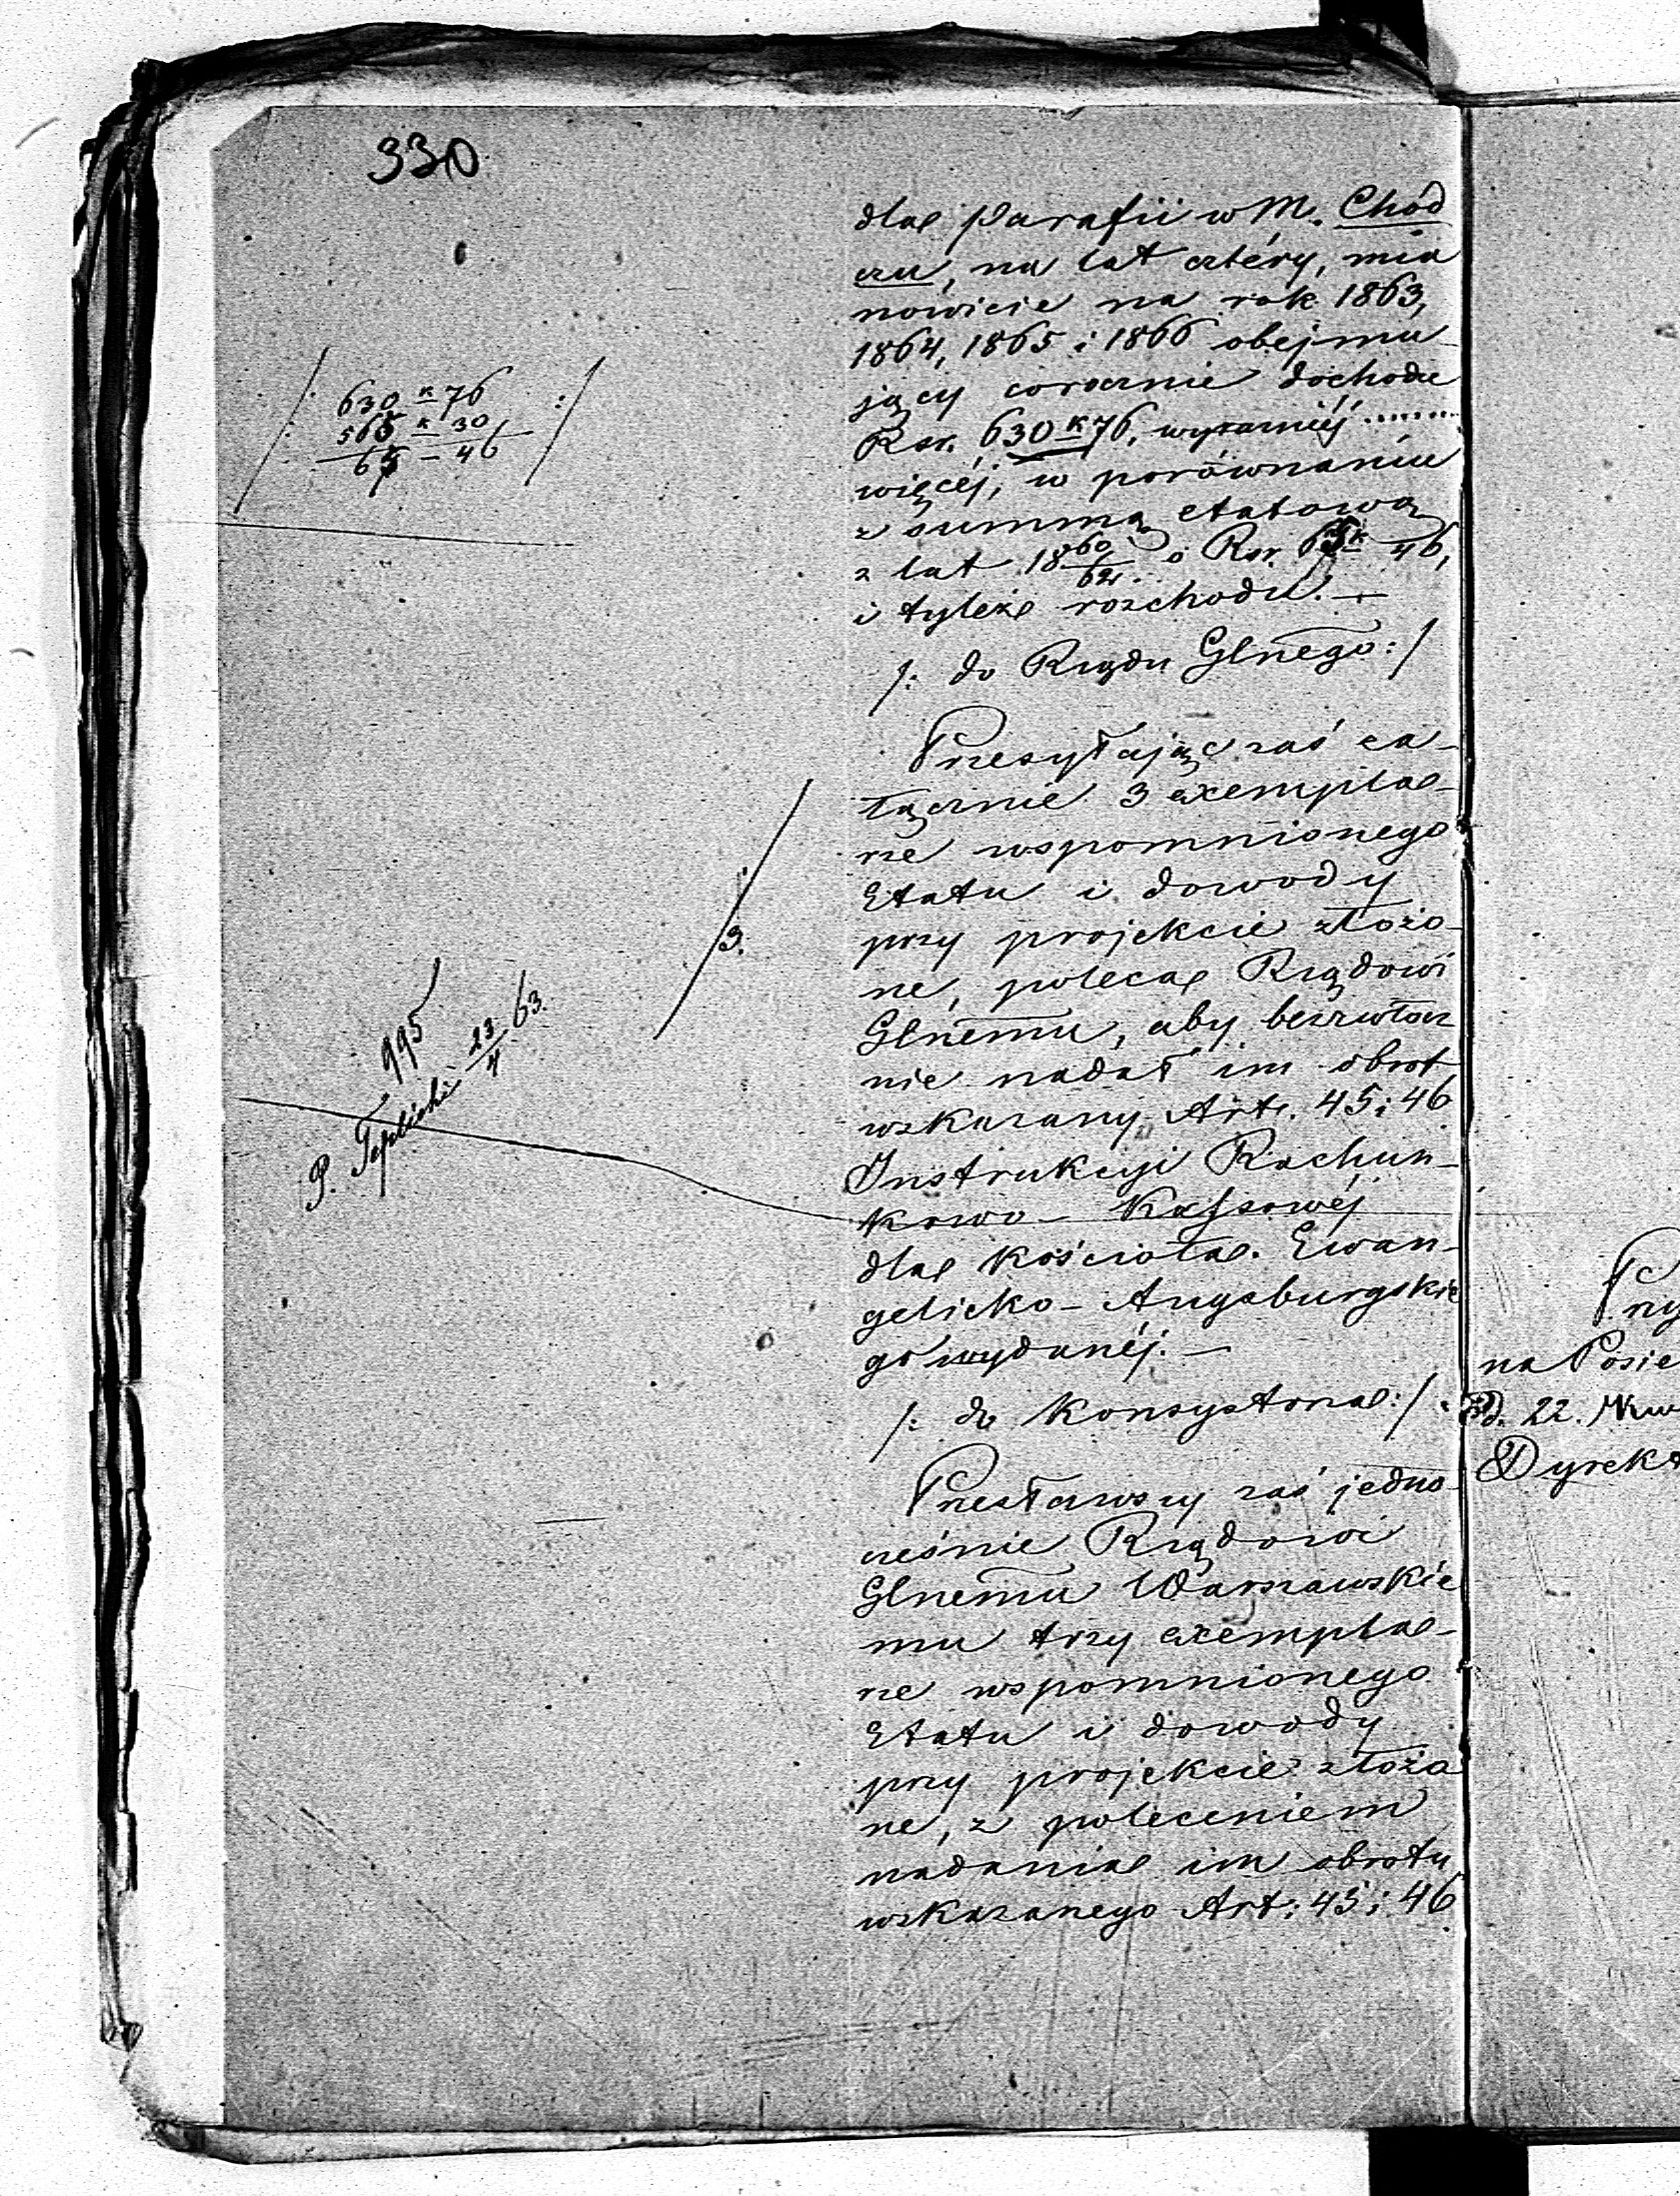 330
dla Parafii w M. Chod
czu, na lat cztéry, mia
nowicie na rok 1863,
1864, 1865 i 1866 obejmu
jący corocznie dochodu
Rsr. 630 k 76, wyraźniéj ........
więcéj, w porównaniu
z summą etatową
z lat 18 60/62. o Rsr. 65 k 46,
i tyleż rozchodu. —
/: do Rządu Glnego :/
/: 630 k 76 :/
565 k 30
65 — 46
Przesyłając zaś za-
łącznie 3 exempla-
rze wspomnionego
Etatu i dowody
przy projekcie złożo-
ne, poleca Rządowi
Glnemu, aby bezzwłocz
nie nadał im obrot
wskazany Art. 45 i 46
Instrukcyi Rachun-
kowo - Kassowéj
dla Kościoła Ewan-
gelicko - Augsburgskie
go wydanéj. —
3.
995
P. Teplicki 23/4 63.
/: do Konsystorza :/
Przesławszy zaś jedno
cześnie Rządowi
Glnemu Warszawskie
mu trzy exempla-
rze wspomnionego
Etatu i dowody
przy projekcie złożo
ne, z poleceniem
nadania im obrotu
wskazanego Art: 45 i 46
na Posie
d. 22. Kw
Dyrekt